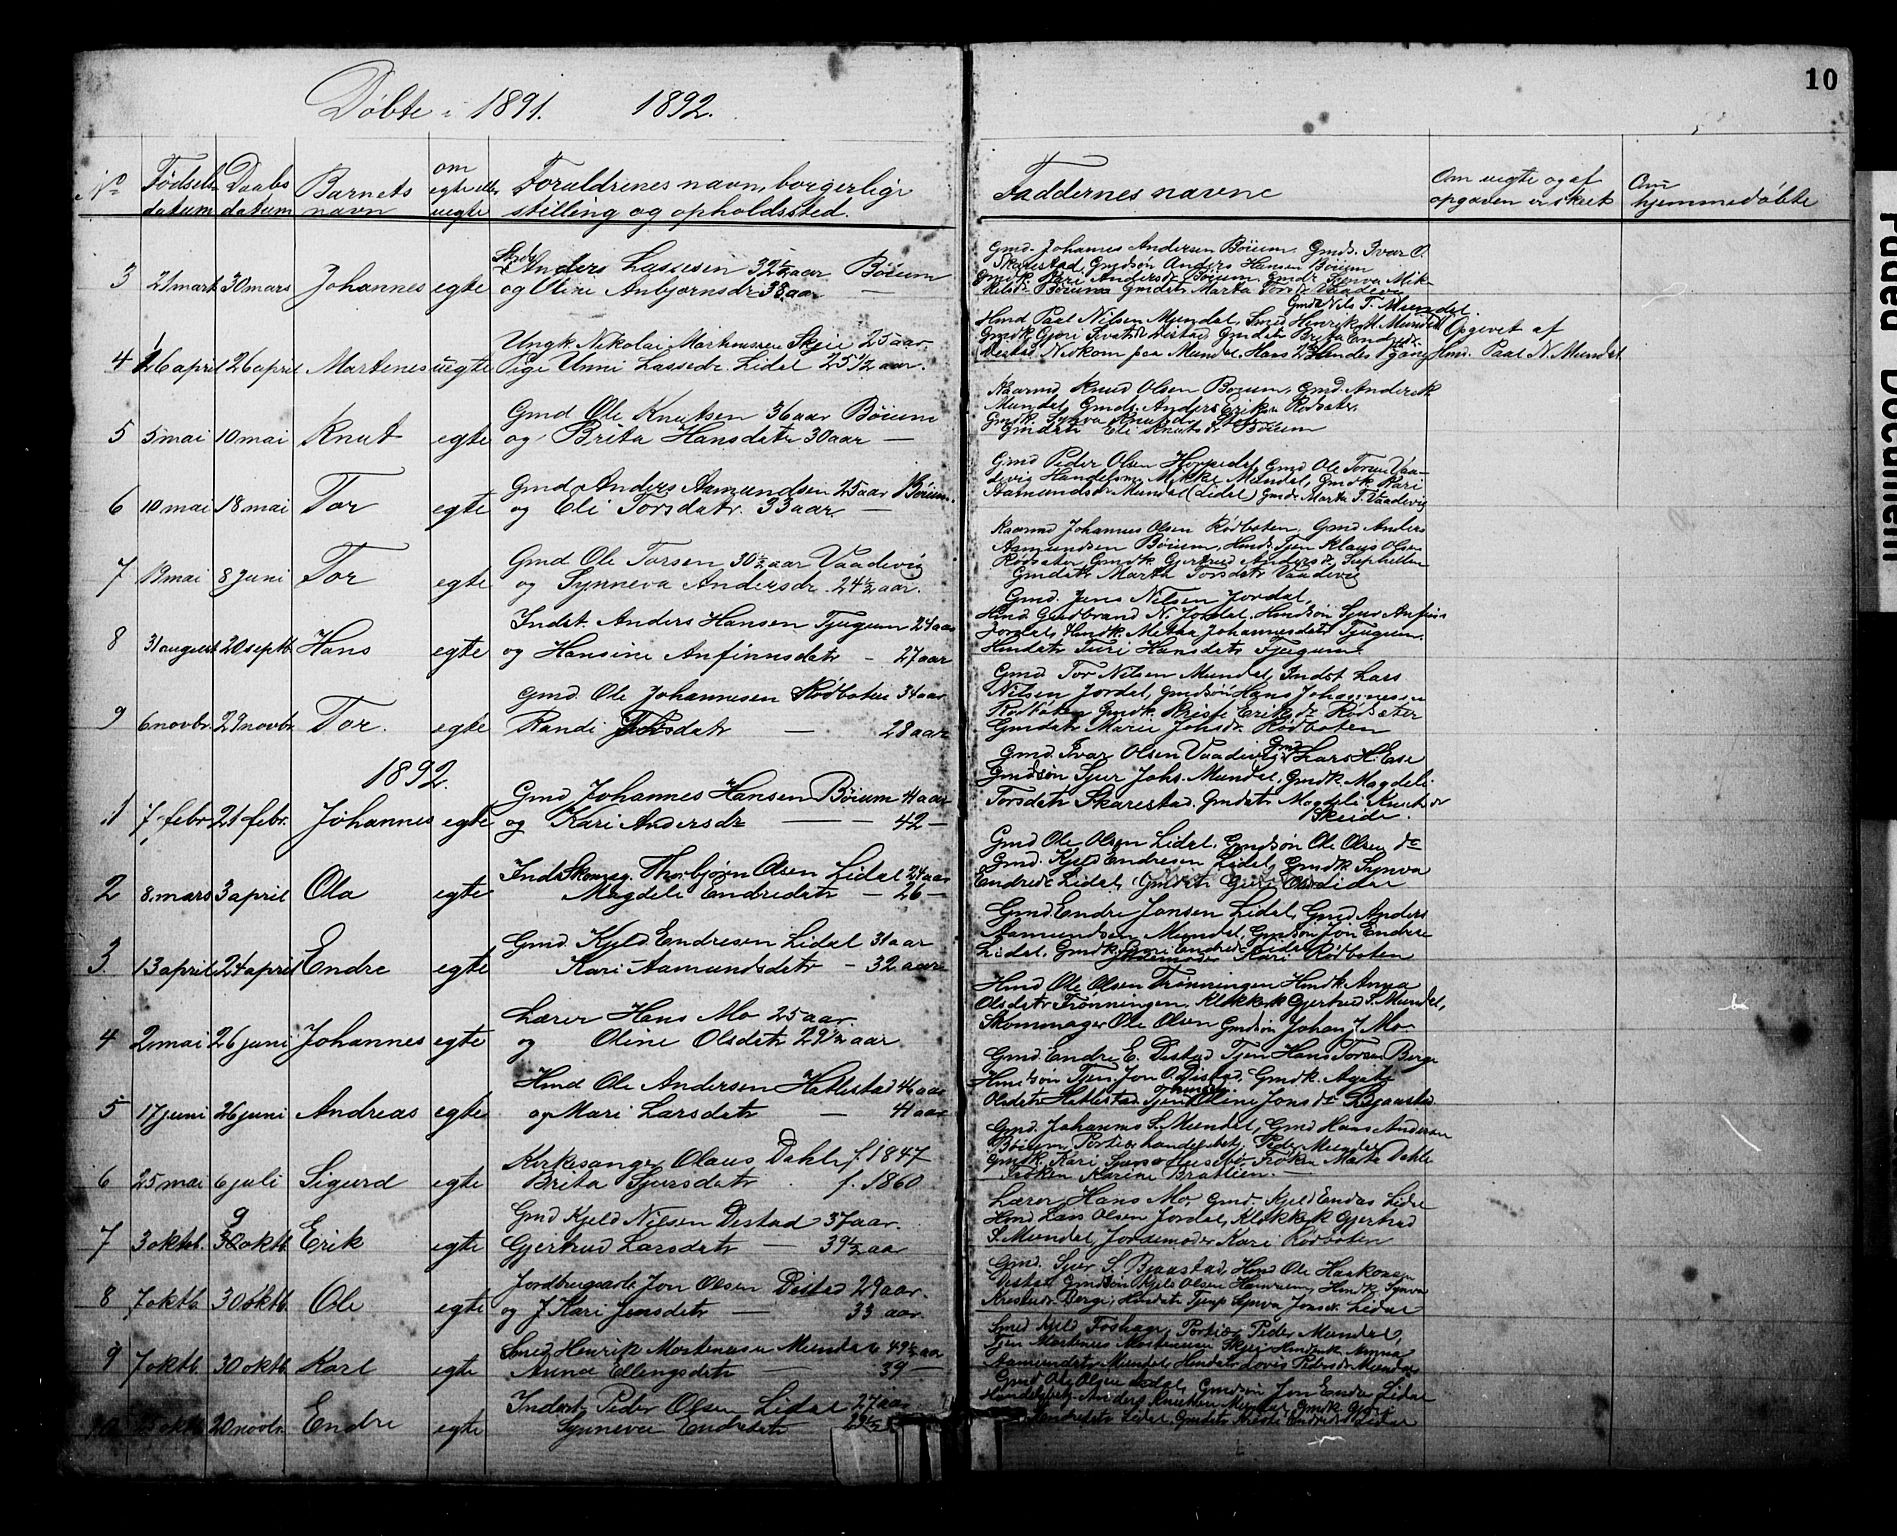 Døbte i 1891. 1892.
10
No Fødsels datum Daabs datum Barnets navn om egte eller uegte Foraldrenes navn, borgerlige stilling og opholdssted.
Faddernes navne Om uegte og af opgaven ønsket Om hjemmedøbte
3 21 marts 30 mars Johannes egte Anders Lassesen 32½ aar Bøium
og Oline Anbjørnsdr 38 aar —
Gmd. Johannes Andersen Bøium, Gmds. Ivar O.
Skarestad, Gmdsøn Anders Hansen Bøium
4 16 april 26 april Martenes uegte Ungk. Nikolai Markussen Skjei 25 aar
Pige Unni Lassedr. Lidal 25 1/2 aar.
Gmd Nils T. Mundal
Hmd Paal Nilsen Mundal, Smed Henrik M. Mundal Opgivet af
Hmd. Paal N. Mundal
5 5 mai 10 mai Knut egte Gmd Ole Knutsen 36 aar Bøium
og Brita Hansdatr 30 aar —
Knud Olsen Bøium, Gmd. Anders
Mundal, Gmds. Anders Eriksen Rødsæter
Gmdatr Eli Knutsdr Bøium
6 10 mai 18 mai Tor egte Gmd Anders Aamundsen 25 aar Bøium.
og Eli Torsdatr. 33 aar. —
Gmd Peder Olsen Hoppedal, Gmd Ole Torsen Vaa-
devig Handelsm. Mikkel Mundal, Gmdk Kari
Aamundsdr Mundal (Lidal) Gmdr Marta T. Vaadevig
7 19 mai 8 Juni Tor egte Gmd Ole Torsen 30½ aar Vaadevig
og Synneva Andersdr. 24½ aar.
Johannes Olsen Rødboten, Gmd Anders
Aamundsen Bøium, Hmds. Tjen Klaus Olsen
Rødsæter, Gmdk Gjertrud Andersdr Suphellen
Gmdatr Marta Torsdatr Vaadevig
8 31 august 20 septb. Hans egte Indst. Anders Hansen Tjugum 24 aar
og Hansine Anfinnsdatr — 27 aar
Gmd. Jens Nilsen Jordal,
Hmd. Gudbrand N. Jordal, Hmdsøn Sjur Anfins
Jordal, Hmdk. Metha Johannesdatr Tjugum.
Hmdatr Turi Hansdatr Tjugum.
9 6 novbr. 29 novbr. Tor. egte Gmd. Ole Johannesen Rødboten 34 aar
Randi Torsdatr — 28 aar
Gmd Tor Nilsen Mundal, Indst Lars
Nilsen Jordal, Gmdsøn Hans Johannessen
Rødboten Gmdk. Kristi Eriksdr Rødsæter
Gmdatr Marie Johsdr. Rødboten
1892.
1 7 febr 21 febr. Johannes egte Gmd Johannes Hansen Bøium 41 aar
og Kari Andersdr — — 42 —
Gmd. Ivar Olsen Vaadevig, Gmd Lars H. Ese
Gmdsøn Sjur Johs. Mundal, Gmdk. Magdeli
Torsdatr Skarestad. Gmdatr Magdeli Knutsdr
Skeide.
2 8. mars 3 april Ola egte Indst Skomag. Thorbjørn Olsen Lidal 24 aar
Magdeli Endredatr — 26 —
Gmd Ole Olsen Lidal, Gmdsøn Ole Olsen do
Gmd. Kjeld Endresen Lidal, Gmdk Synva
Endredr Lidal, Gmdatr Guri Olsd Lidal
3 13 april 24 april Endre egte Gmd. Kjeld Endresen Lidal 31 aar
Kari Aamundsdatr — 32 aar
Gmd Endre Jonsen Lidal, Gmd Anders
Aamundsen Mundal, Gmdsøn Jon Endre
Lidal, Gmdk. Guri Endredr Lidal
Jordemoder Kari Rødboten
4 2 mai 26 juni Johannes egte Lærer Hans Mo 25 aar.
og Oline Olsdatr 29½ aar
Hmd Ole Olsen Trønningen Hmdk Anna
Olsdatr Trønningen, Klokkerk Gjertrud S. Mundal,
Skommager Ole Olsen Gmdsøn Johan J. Mo
5 17 juni 26 juni Andreas egte Hmd Ole Andersen Hatlestad 46 aar
og Mari Larsdatr — 41 aar
Gmd. Endre E. Distad Tjen Hans Torsen Berge
Hmdsøn Tjen. Jon O. Distad, Gmdk. Agate
Olsdatr Hatlestad Tjen Oline Jonsdr Bjaastad
6 25 mai 6 juli Sigurd egte Kirkesanger Olaus Dahle f. 1847
Brita Sjursdatr f. 1860
Gmd. Johannes S. Mundal, Gmd Hans Andersen
Bøium, Portier Peder Mundal
Gmdk. Kari Husebø, Frøken Marta Dahle
Frøken Karine Brattlien.
7 3 oktbr. 9 oktb. Erik egte Gmd Kjeld Nilsen Distad 37 aar.
Gjertrud Larsdatr — 39½ aar
Lærer Hans Mo, Gmd. Kjeld Endres Lidal
Hmd Lars Olsen Jordal, Klokkerk Gjertrud
S. Mundal, Jordemoder Kari Rødboten
8 7 oktb. 30 oktb. Ole egte Jordbrugsarb. Jon Olsen Distad 29 aar.
og J. Kari Jensdatr — 33 aar.
Gmd. Sjur S. Bjaastad, Hmd Ole Haakonsen
Distad Gmdsøn Kjels Olsen Hamrum, Hmdk. Synva
Berge, Hmdatr Tjenp Synva Jonsdr. Lidal
9 7 oktb. 30 oktb. Karl egte Smed Henrik Martenessen Mundal 49½ aar
Anna Ellingsdatr 39
Smed Kjeld Foshage, Portier Peder Mundal,
Tjen Martenus Martenessen Skjei Hmdk Anna
Aamundsdatr Mundal, Hmdatr Lovis Pedersdr Mundal
10 oktb 20 novbr. Endre egte Inderst Peder Olsen Lidal 27 aar
Synneva Endredatr 29½
Gmd Ole Olsen Lidal, Gmdsøn Jon Endre Lidal
Handelsbetj. Anders Knutsen Mundal, Gmdk Guri
Endredatr Lidal, Gmdatr Kristi Endredr Lidal